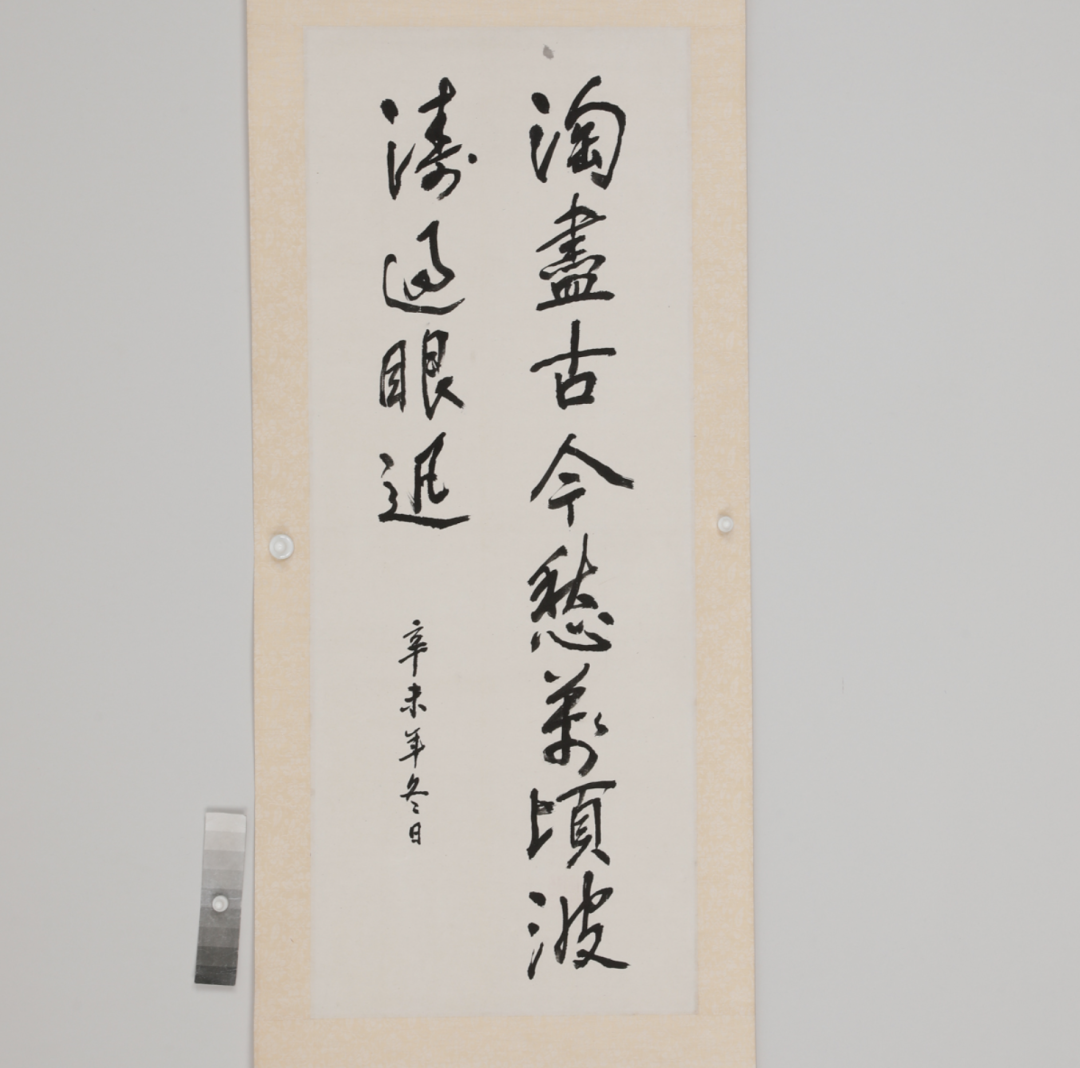 淘盡古今愁萬頃波
濤過眼迅
辛未年冬日